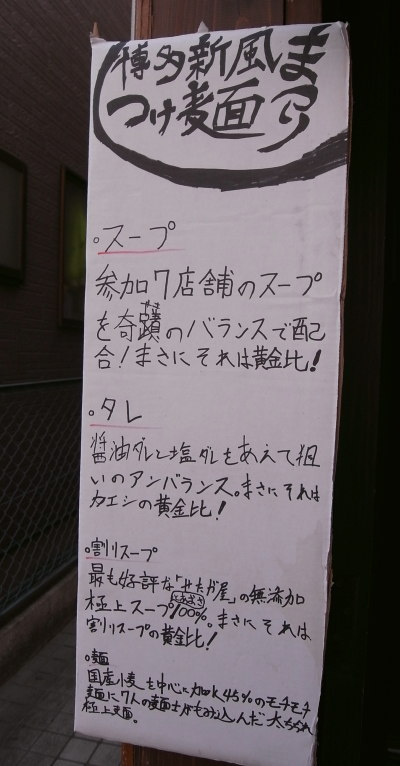 博多新風まつり
つけ麺
・スープ
参加7店舗のスープ
を奇蹟のバランスで配
合!まさにそれは黄金比!
・タレ
醤油ダレと塩ダレをあえて狙
いのアンバランス。まさにそれは
カエシの黄金比!
・割りスープ
最も好評な「せたが屋」の無添加
極上スープ100%。まさにそれは
割りスープの黄金比!
・麺
国産小麦を中心に加水45%のモチモチ
麺に7人の麺士がもみ込んだ太ちぢれ
極上麺。